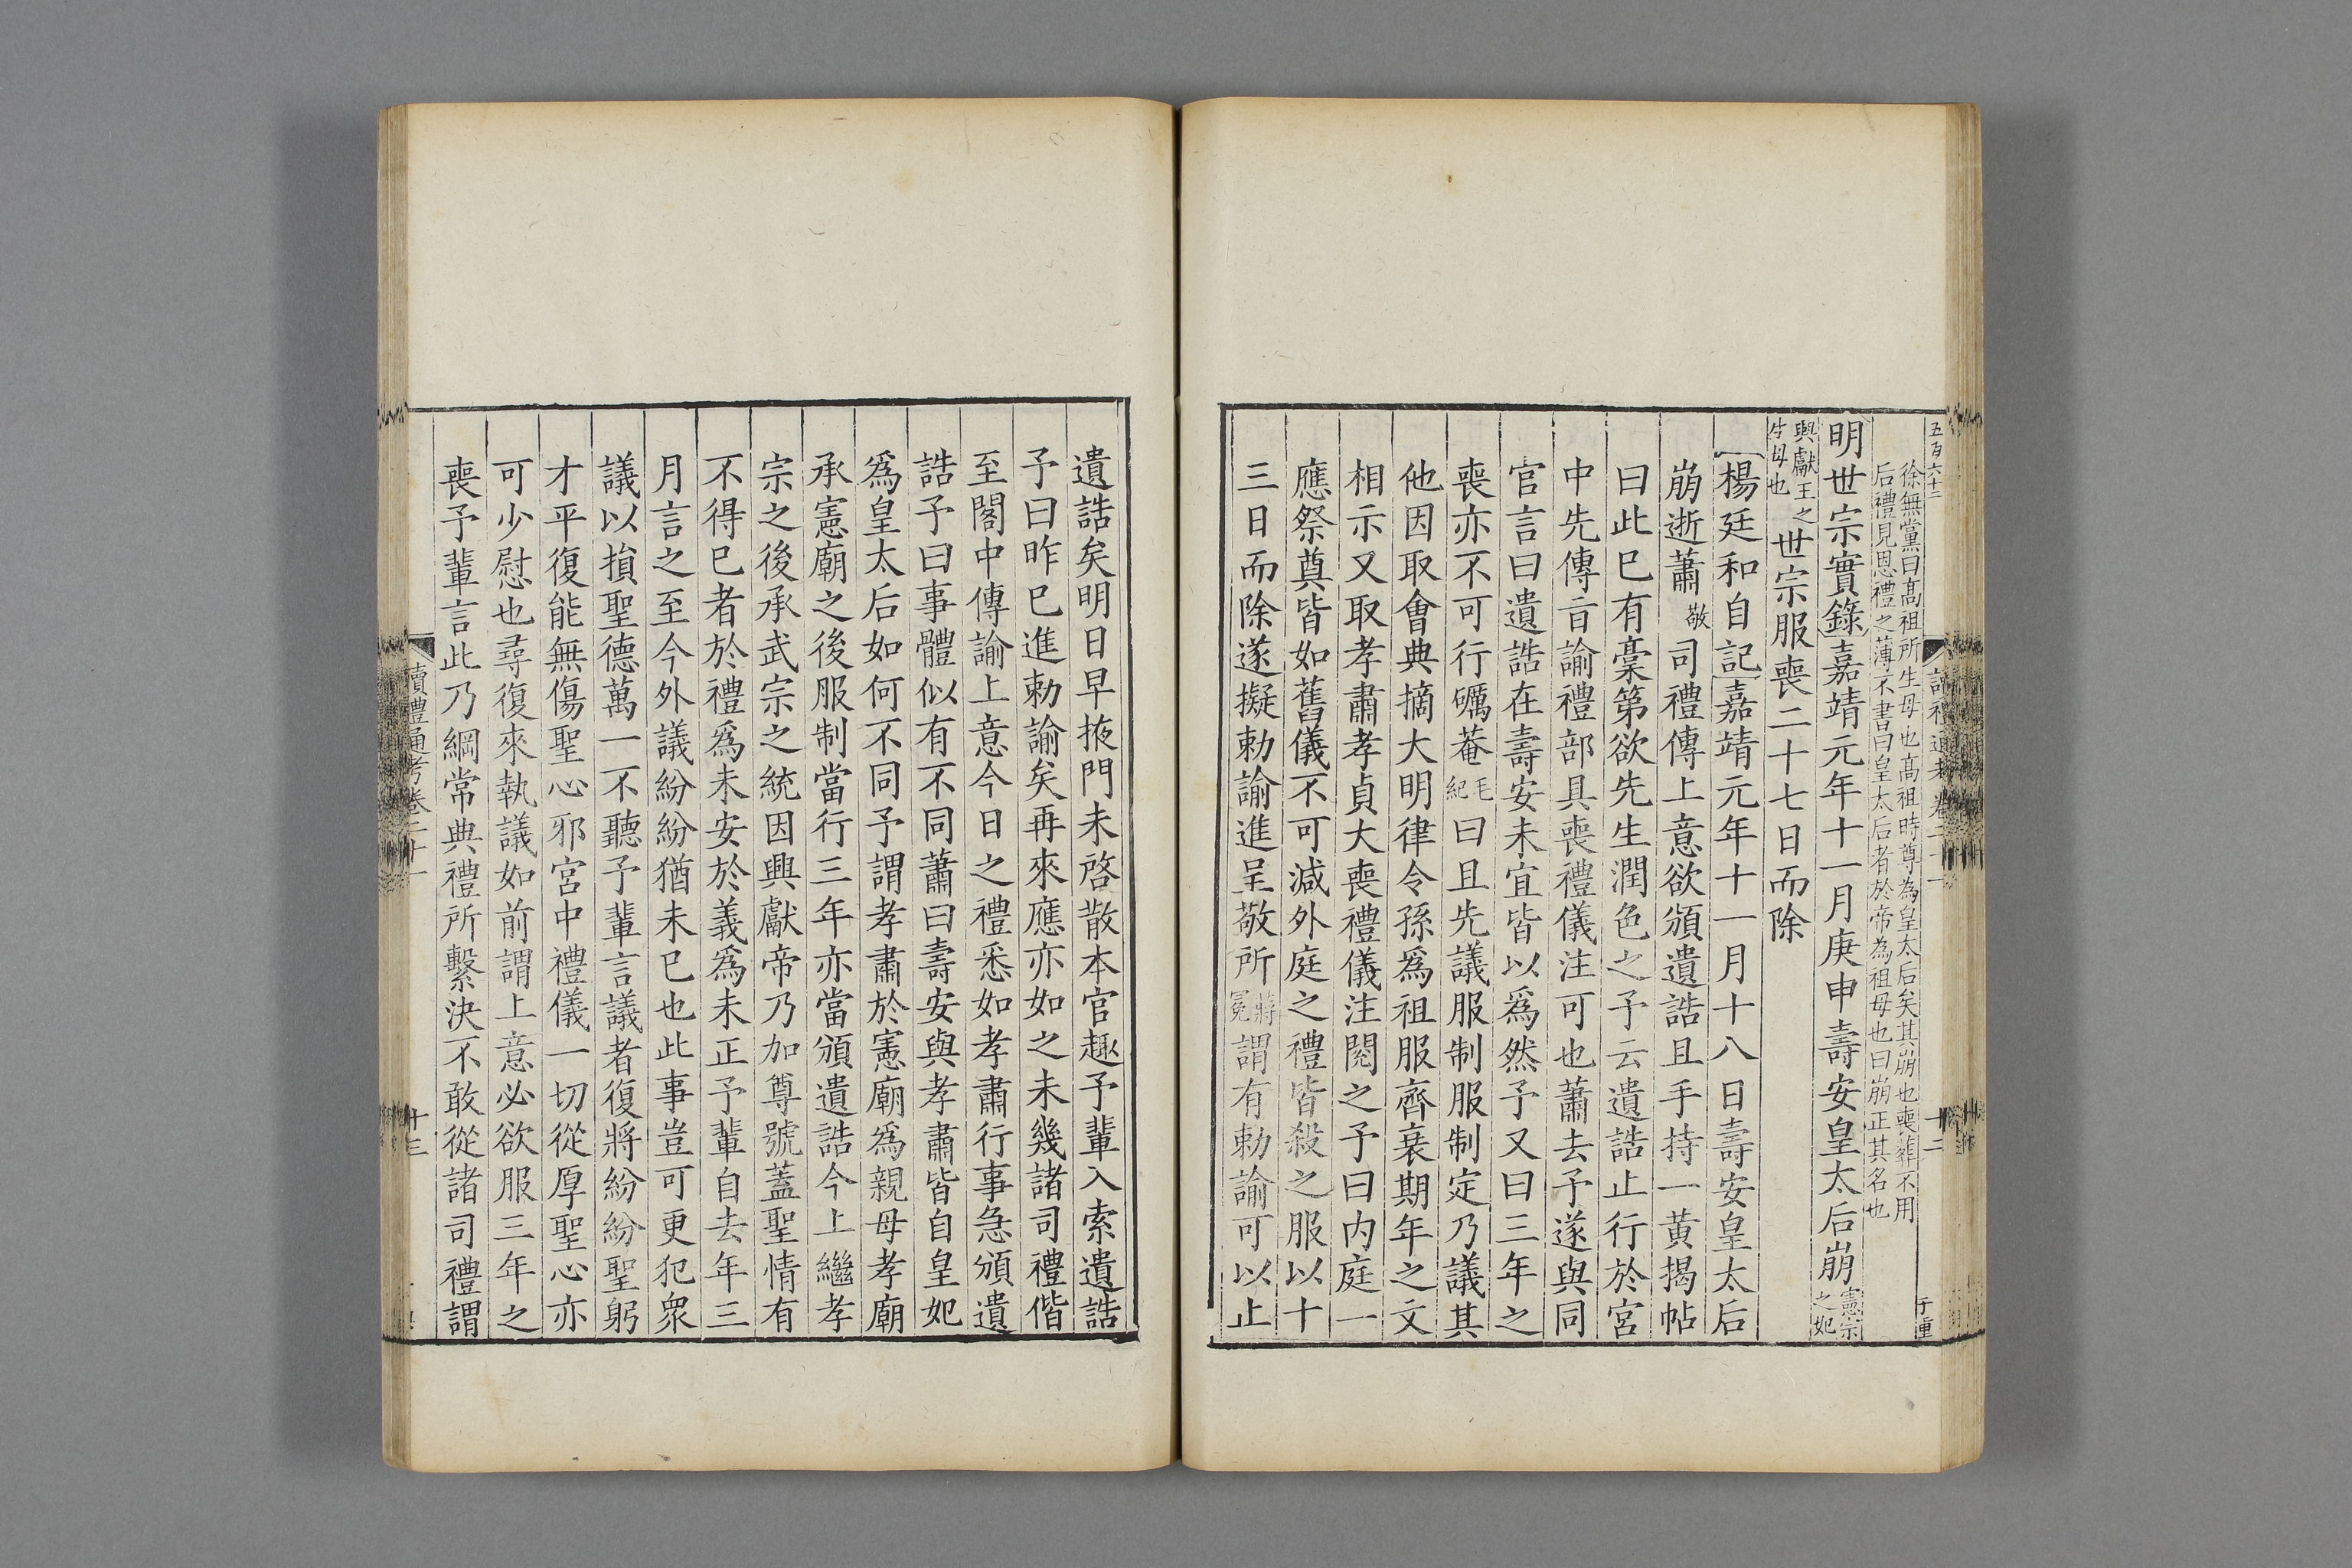 五百六十二
徐無黨曰髙祖所生母也髙祖時尊為皇太后矣其崩也喪葬不用
后禮見恩禮之薄不書曰皇太后者於帝為祖母也曰崩正其名也
明世宗實錄嘉靖元年十一月庚申壽安皇太后崩憲宗之妃
興獻王之生母也世宗服喪二十七日而除
楊廷和自記嘉靖元年十一月十八日壽安皇太后
崩逝蕭敬司禮傳上意欲頒遺誥且手持一黃揭帖
曰此已有稾第欲先生潤色之予云遺誥止行於宮
中先傳㫖諭禮部具喪禮儀注可也蕭去予遂與同
官言曰遺誥在壽安未宜皆以爲然予又曰三年之
喪亦不可行礪菴毛紀曰且先議服制服制定乃議其
他因取會典摘大明律令孫爲祖服齊衰期年之文
相示又取孝肅孝貞大喪禮儀注閱之予曰内庭一
應祭奠皆如舊儀不可減外庭之禮皆殺之服以十
三日而除遂擬勅諭進呈敬所蔣冕謂有勅諭可以止
遺誥矣明日早掖門未啓散本官趣予輩入索遺誥
予曰昨已進勅諭矣再來應亦如之未幾諸司禮偕
至閣中傳諭上意今日之禮悉如孝肅行事急頒遺
誥予曰事體似有不同蕭曰壽安與孝肅皆自皇妃
爲皇太后如何不同予謂孝肅於憲廟爲親母孝廟
承憲廟之後服制當行三年亦當頒遺誥今上繼孝
宗之後承武宗之統因興獻帝乃加尊號蓋聖情有
不得已者於禮爲未安於義爲未正予輩自去年三
月言之至今外議紛紛猶未已也此事豈可更犯衆
議以損聖德萬一不聽予輩言議者復將紛紛聖躬
才平復能無傷聖心邪宮中禮儀一切從厚聖心亦
可少慰也尋復來執議如前謂上意必欲服三年之
喪予輩言此乃綱常典禮所繫決不敢從諸司禮謂
讀禮通考卷二十一
十三